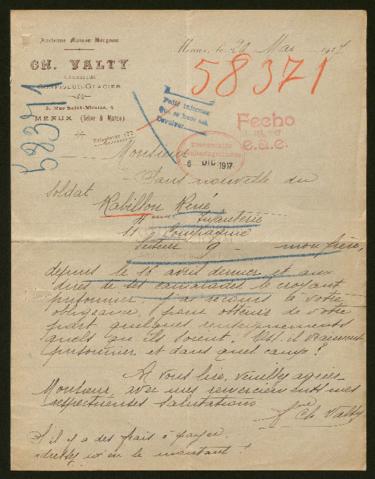 Ancienne Maison Bergeron
CH. VALTY
CONFISEUR-GLACIER
MEAUX (Seine & Marne)
Meaux, le 26 Mai 1917
58371
58371
Fecho
e.a.e.
6 DIC 1917
Monsieur
Sans nouvelle du
soldat Rabillon René
Infanterie
11 Compagnie
Secteur 9 mon frère,
depuis le 16 avril dernier et aux
dires de ses camarades le croyant
prisonnier j'ai recours à votre
obligeance, pour obtenir de votre
part quelques renseignements
quels qu'ils soient. Est-il vraiment
prisonnier et dans quel camp?
A vous lire, veuillez agréer
Monsieur avec mes remerciements mes
respectueuses salutations
Ch. Valty
S'il y a des frais à payer
adressez m'en le montant!